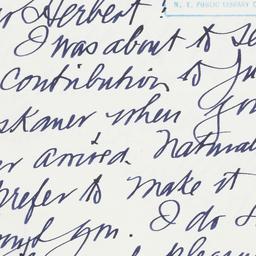 N. Y. PUBLIC LIBRARY
Herbert
I was about to se
contribution to Ju
skauer when you
er arrived. Natural
prefer to make it
you. I do